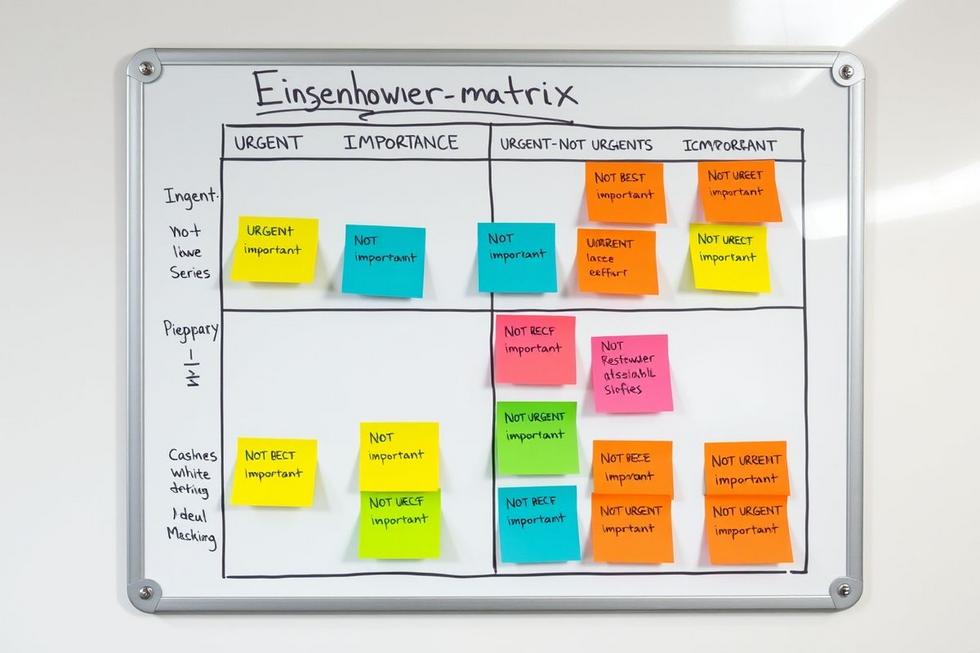 Einsenhowier-matrix
URGENT IMPORTANCE URGENT-NOT URGENTS ICMPORRANT
Ingent.
not
liwe
Series
NOT BEST
important
NOT UREET
important
URGENT
important
NOT
important
NOT
important
important
NOT URECT
important
Pieppary
NOT RECF
important
NOT
Restewder
Sicfies
NOT URGENT
important
Cashes
white
NOT BECT
important
NOT
important
NOT UECF
important
NOT BECE
imprant
NOT URREMT
important
Ideul
Mascking
NOT RECF
important
NOT URGENT
imprtant
NOT URGENT
important